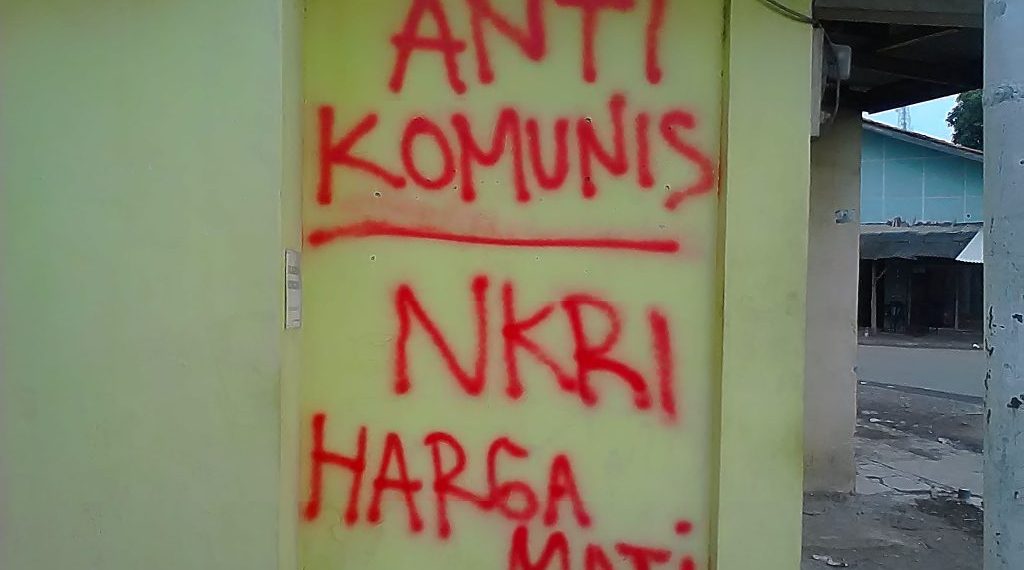 ANTI
KOMUNIS
NKRI
HARGA
MATi